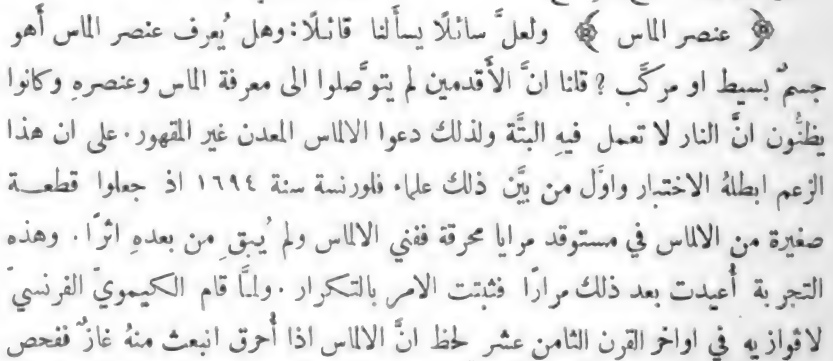 ﴿ عنصر الماس ﴾ ولعلَّ سائلًا يسأَلنا قائلًا: وهل يُعرف عنصر الماس أهو
جسمٌ بسيط او مركَّب ? قلنا انَّ الأَقدمين لم يتوصَّلوا الى معرفة الماس وعنصرهِ وكانوا
يظنُّون انَّ النار لا تعمل فيهِ البتَّة ولذلك دعوا الالماس المعدن غير المقهور. على ان هذا
الزعم ابطلهُ الاختبار واوَّل من بيَّن ذلك علماء فلورنسة سنة ١٦٩٤ اذ جعلوا قطعــة
صغيرة من الالماس في مستوقد مرايا محرقة ففني الالماس ولم يُبقِ من بعدهِ اثرًا. وهذه
التجربة أُعيدت بعد ذلك مرارًا فثبتت الامر بالتكرار. ولمَّا قام الكيمويّ الفرنسيّ
لاڤوازيه في اواخر القرن الثامن عشر لحظ انَّ الالماس اذا أُحرق انبعث منهُ غازٌ ففحص